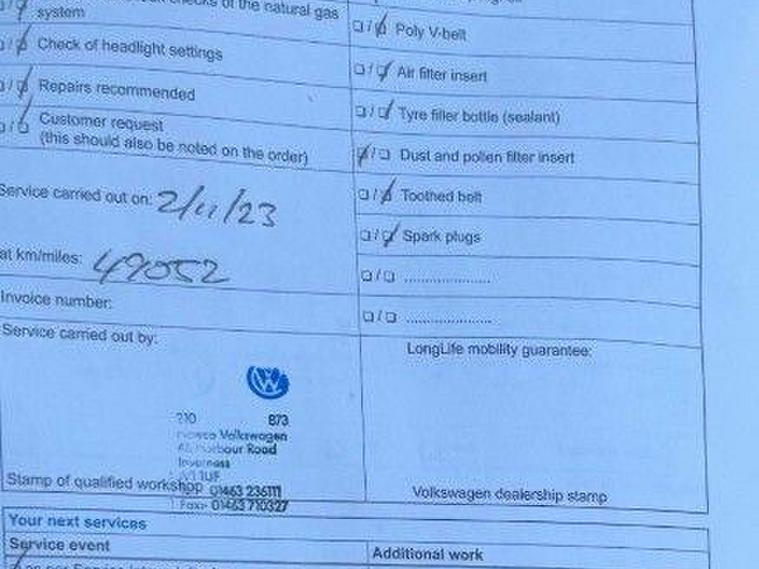 of the natural gas
system
Check of headlight settings
Repairs recommended
Customer request
(this should also be noted on the order)
Service carried out on: 2/11/23
at km/miles: 49052
Invoice number:
Service carried out by:
210 B73
Volkswagen
Harbour Road
Inverness
IV1 1UF
01463 236111
Fax: 01463 710327
Stamp of qualified workshop
Poly V-belt
Air filter insert
Tyre filler bottle (sealant)
Dust and pollen filter insert
Toothed belt
Spark plugs
....................
....................
LongLife mobility guarantee:
Volkswagen dealership stamp
Your next services
Service event
Additional work